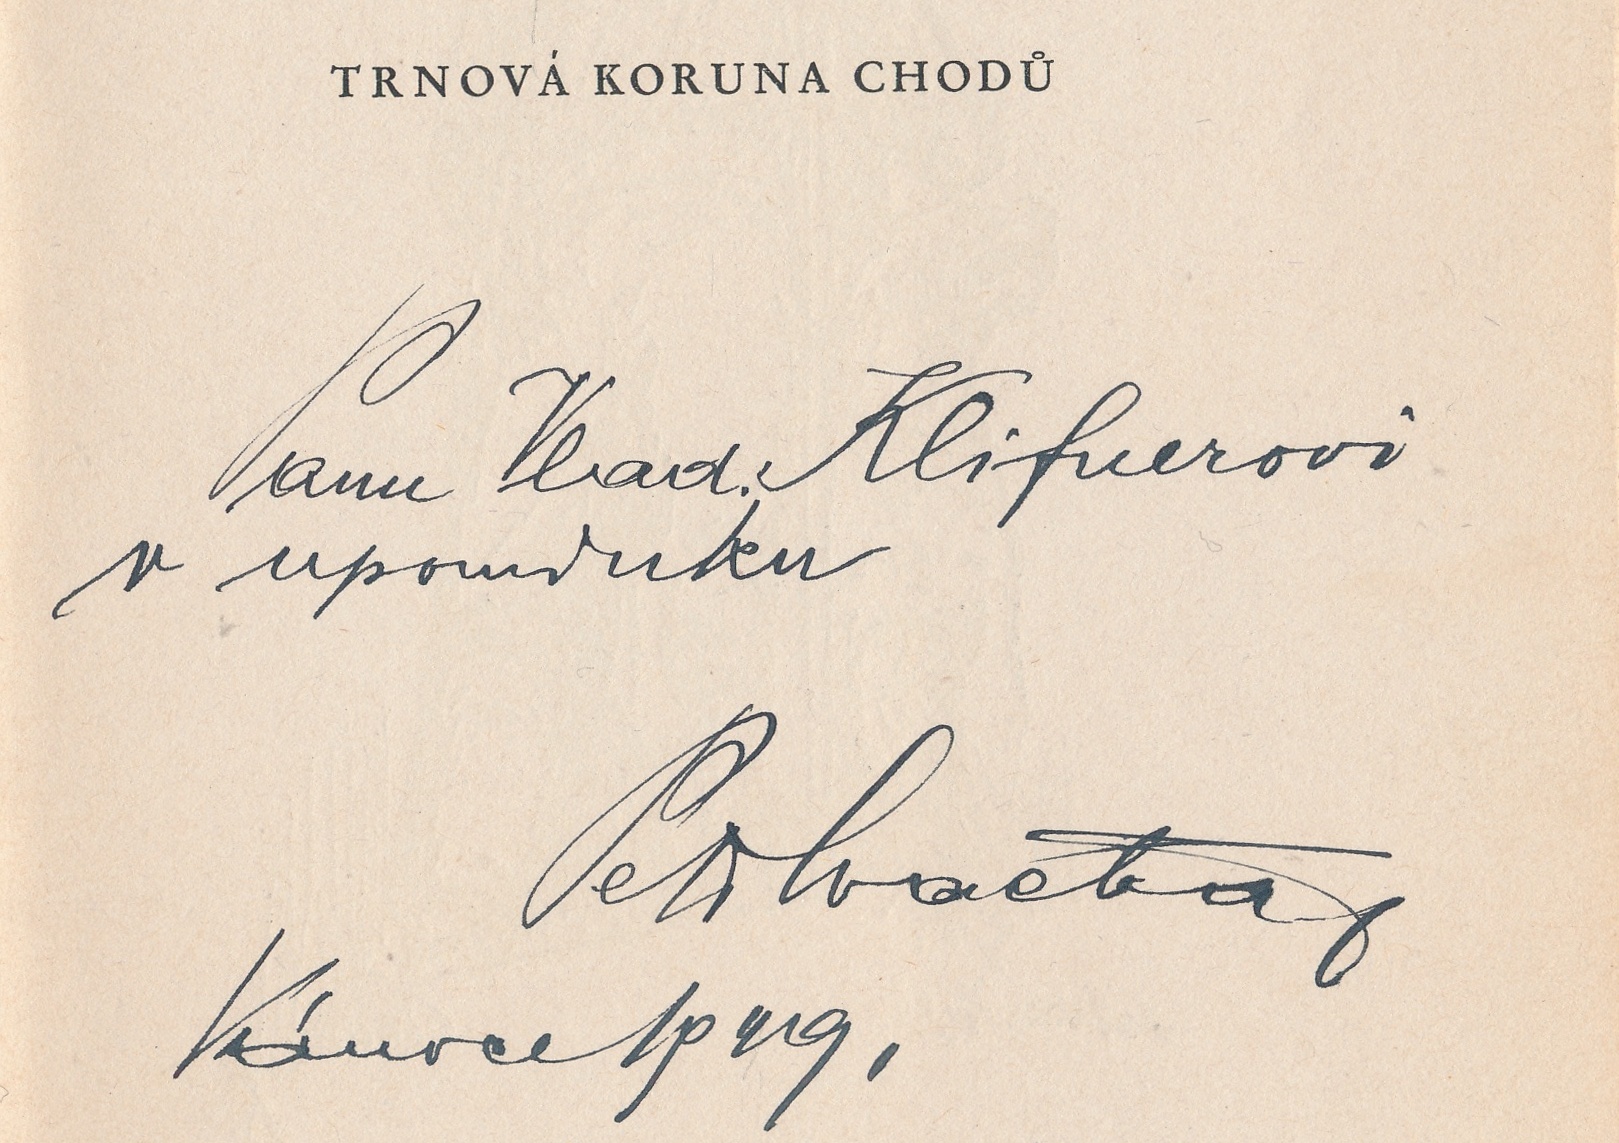 TRNOVÁ KORUNA CHODŮ
Panu Vlad. Klifnerovi
v upomínku
Petr
Vánoce 1949.